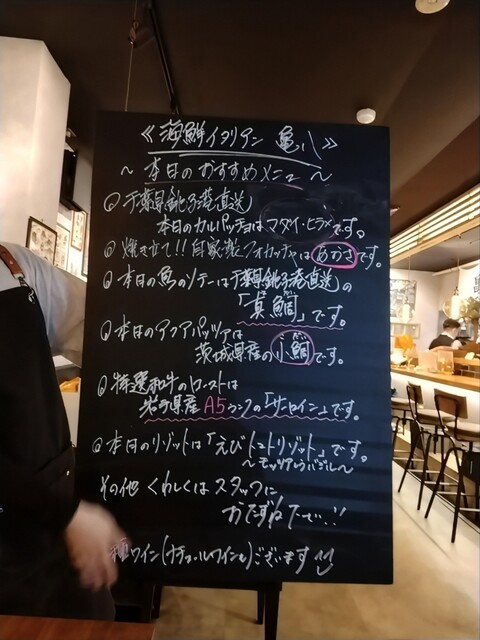 《海鮮イタリアン 亀八》
～本日のおすすめメニュー～
千葉県銚子港直送
本日のカルパッチョはマダイ・ヒラメです。
焼き立て!!自家製フォカッチャはあおさです。
本日の魚のソテーは千葉県銚子港直送の
「真鯛」です。
本日のアクアパッツァは
茨城県産の小鯛です。
特選和牛のローストは
岩手県産A5ランクの「サーロイン」です。
本日のリゾットは「えびトマトリゾット」です。
～モッツァレラバジル～
その他 くわしくはスタッフに
おたずね下さい!!
種ワイン(ナチュールワインも)ございます